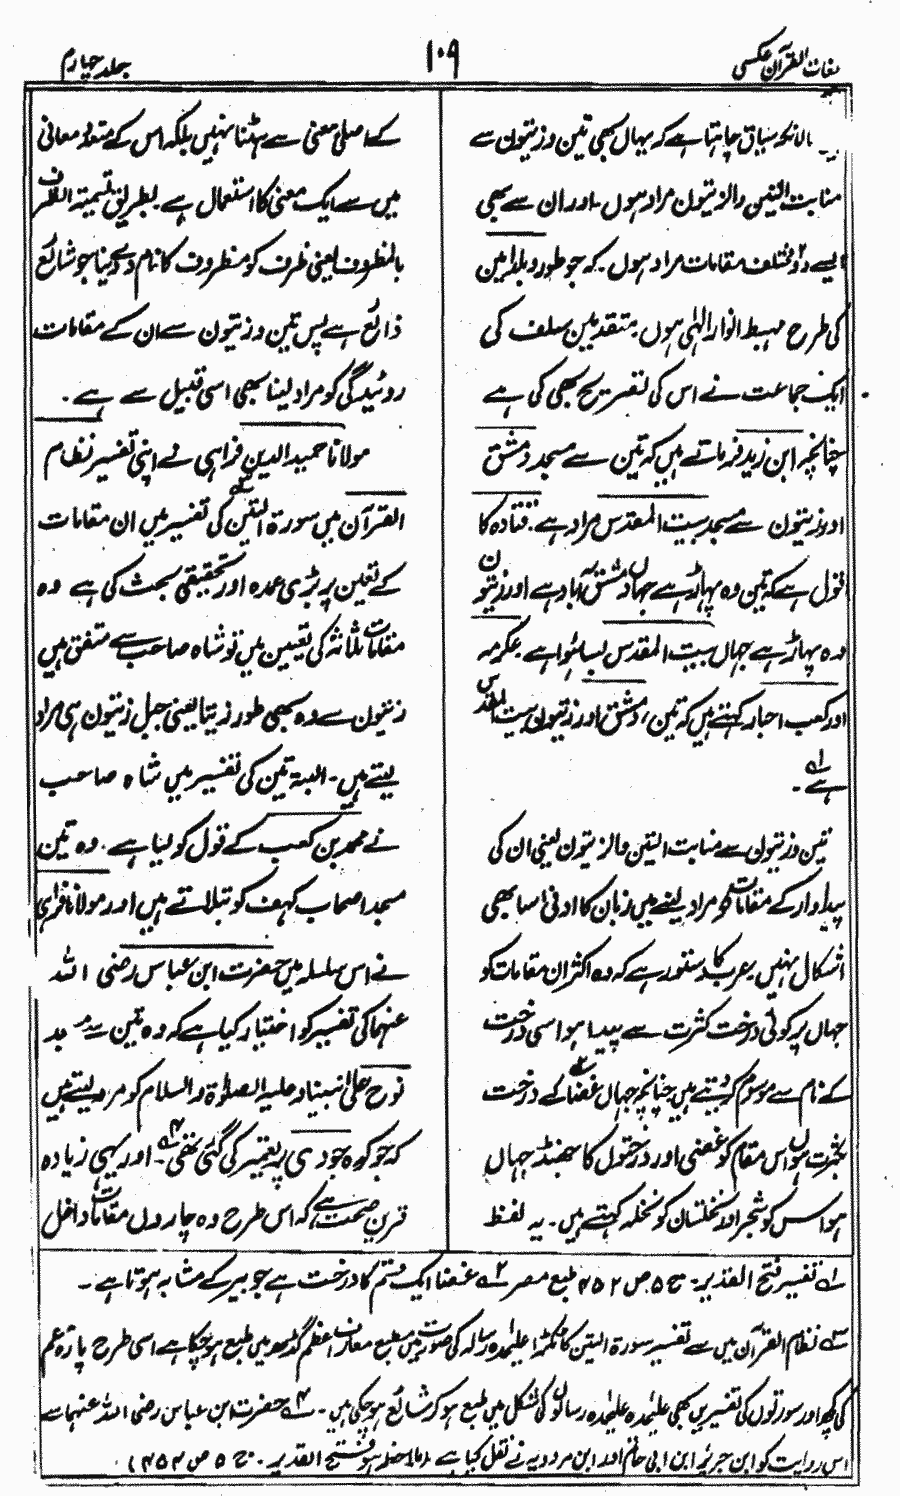 لغات القرآن عکسی
۱۰۹
جلد چہارم
چنانچہ سیاق چاہتا ہے کہ یہاں بھی تین و زیتون سے
منابت التین والزیتون مراد ہوں۔ اور ان سے بھی
ایسے دو مختلف مقامات مراد ہوں۔ کہ جو طور و بلد امین
کی طرح مہبط انوار الٰہی ہوں۔ متقدمین سلف کی
ایک جماعت نے اس کی تفسیر یہی کی ہے
چنانچہ ابن زید فرماتے ہیں کہ تین سے مسجد دمشق
اور زیتون سے مسجد بیت المقدس مراد ہے۔ قتادہ کا
قول ہے کہ تین وہ پہاڑ ہے جہاں دمشق آباد ہے اور زیتون
وہ پہاڑ ہے جہاں بیت المقدس بسا ہوا ہے۔ عکرمہ
اور کعب احبار کہتے ہیں کہ تین، دمشق اور زیتون بیت المقدس
ہے۔ ؎۱
تین و زیتون سے منابت التین والزیتون یعنی ان کی
پیداوار کے مقامات کو مراد لینے میں زبان کا ادنیٰ سا بھی
اشکال نہیں۔ عرب کا دستور ہے کہ وہ اکثر ان مقامات کو
جہاں پر کوئی درخت کثرت سے پیدا ہوا اسی درخت
کے نام سے موسوم کر دیتے ہیں چنانچہ جہاں غضا ؎۲ کے درخت
بکثرت ہوں اس مقام کو غضیٰ اور درختوں کا جھنڈ جہاں
ہو اس کو شجر اور نخلستان کو نخلہ کہتے ہیں۔ یہ لفظ
کے اصلی معنی سے ہٹنا نہیں بلکہ اس کے متعدد معانی
میں سے ایک معنی کا استعمال ہے۔ بطریق تسمیۃ الظرف
بالمظروف یعنی ظرف کو مظروف کا نام دے دینا جو شائع
ذائع ہے پس تین و زیتون سے ان کے مقامات
روئیدگی کو مراد لینا بھی اسی قبیل سے ہے۔
مولانا حمید الدین فراہی نے اپنی تفسیر نظام
القرآن میں سورۃ التین ؎۳ کی تفسیر میں ان مقامات
کے تعین پر بڑی عمدہ اور تحقیقی بحث کی ہے وہ
مقامات ثلاثہ کی تعیین میں تو شاہ صاحب سے متفق ہیں
زیتون سے وہ بھی طور زیتا یعنی جبل زیتون ہی مراد
لیتے ہیں۔ البتہ تین کی تفسیر میں شاہ صاحب
نے محمد بن کعب کے قول کو لیا ہے۔ وہ تین
مسجد اصحاب کہف کو بتلاتے ہیں اور مولانا فراہی
نے اس سلسلہ میں حضرت ابن عباس رضی اللہ
عنہما کی تفسیر کو اختیار کیا ہے کہ وہ تین سے مسجد
نوح علیٰ نبینا و علیہ الصلوٰۃ والسلام کو مراد لیتے ہیں
کہ جو کوہ جودی پر تعمیر کی گئی تھی۔ ؎۴ اور یہی زیادہ
قرین صحت ہے کہ اس طرح وہ چاروں مقامات داخل
؎۱ تفسیر فتح القدیر۔ ج ۵ ص ۴۵۲ طبع مصر ؎۲ غضا ایک قسم کا درخت ہے جو بیر کے مشابہ ہوتا ہے۔
؎۳ نظام القرآن میں سے تفسیر سورۃ التین کا ٹکڑا علیحدہ رسالہ کی صورت میں مطبع معارف اعظم گڈھ میں طبع ہو چکا ہے اسی طرح پارہ عم
کی کچھ اور سورتوں کی تفسیریں بھی علیحدہ علیحدہ رسالوں کی شکل میں طبع ہو کر شائع ہو چکی ہیں۔ ؎۴ حضرت ابن عباس رضی اللہ عنہما سے
اس روایت کو ابن جریر، ابن ابی حاتم اور ابن مردویہ نے نقل کیا ہے (ملاحظہ ہو فتح القدیر۔ ج ۵ ص ۴۵۳)